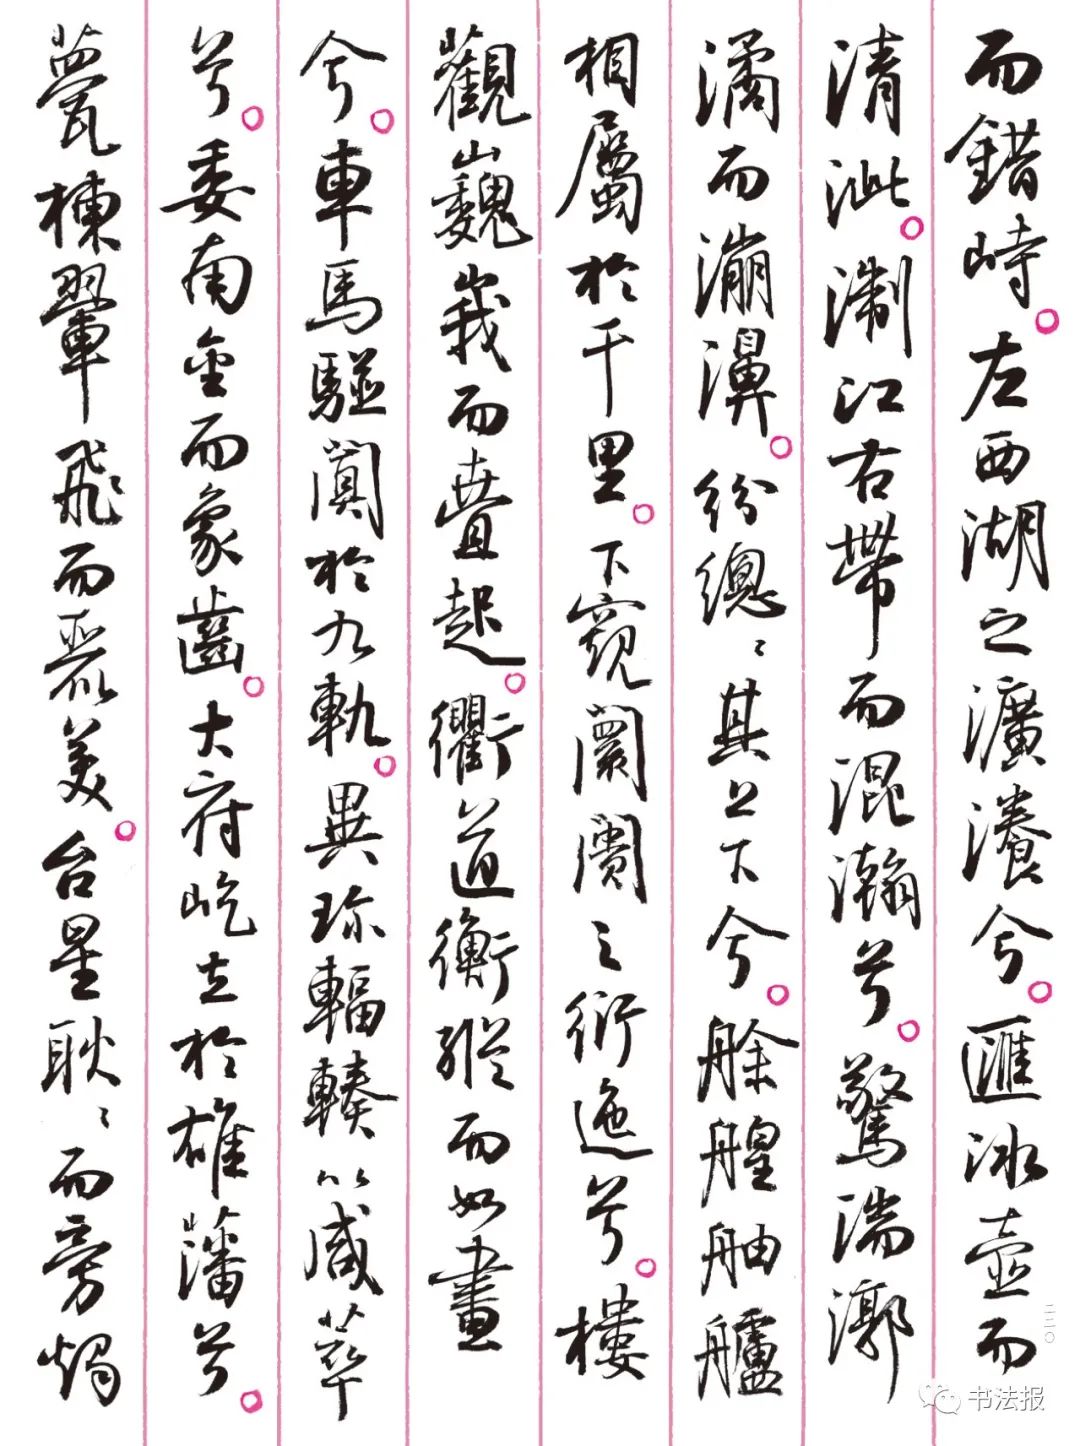 而錯峙。左西湖之瀇瀁兮。匯冰壺而
清泚。淛江右帶而混瀚兮。驚湍漷
潏而漰濞。紛總〻其上下兮。艅艎舳艫
相屬於千里。下窺闤闠之衍迤兮。樓
觀巍峩而疊起。衢道衡縱而如畫
兮。車馬騈闐於九軌。異珎輻輳以咸萃
兮。委南金而象齒。大府屹立於雄藩兮。
甍棟翬飛而麗美。台星耿〻而旁燭
二三〇
书法报